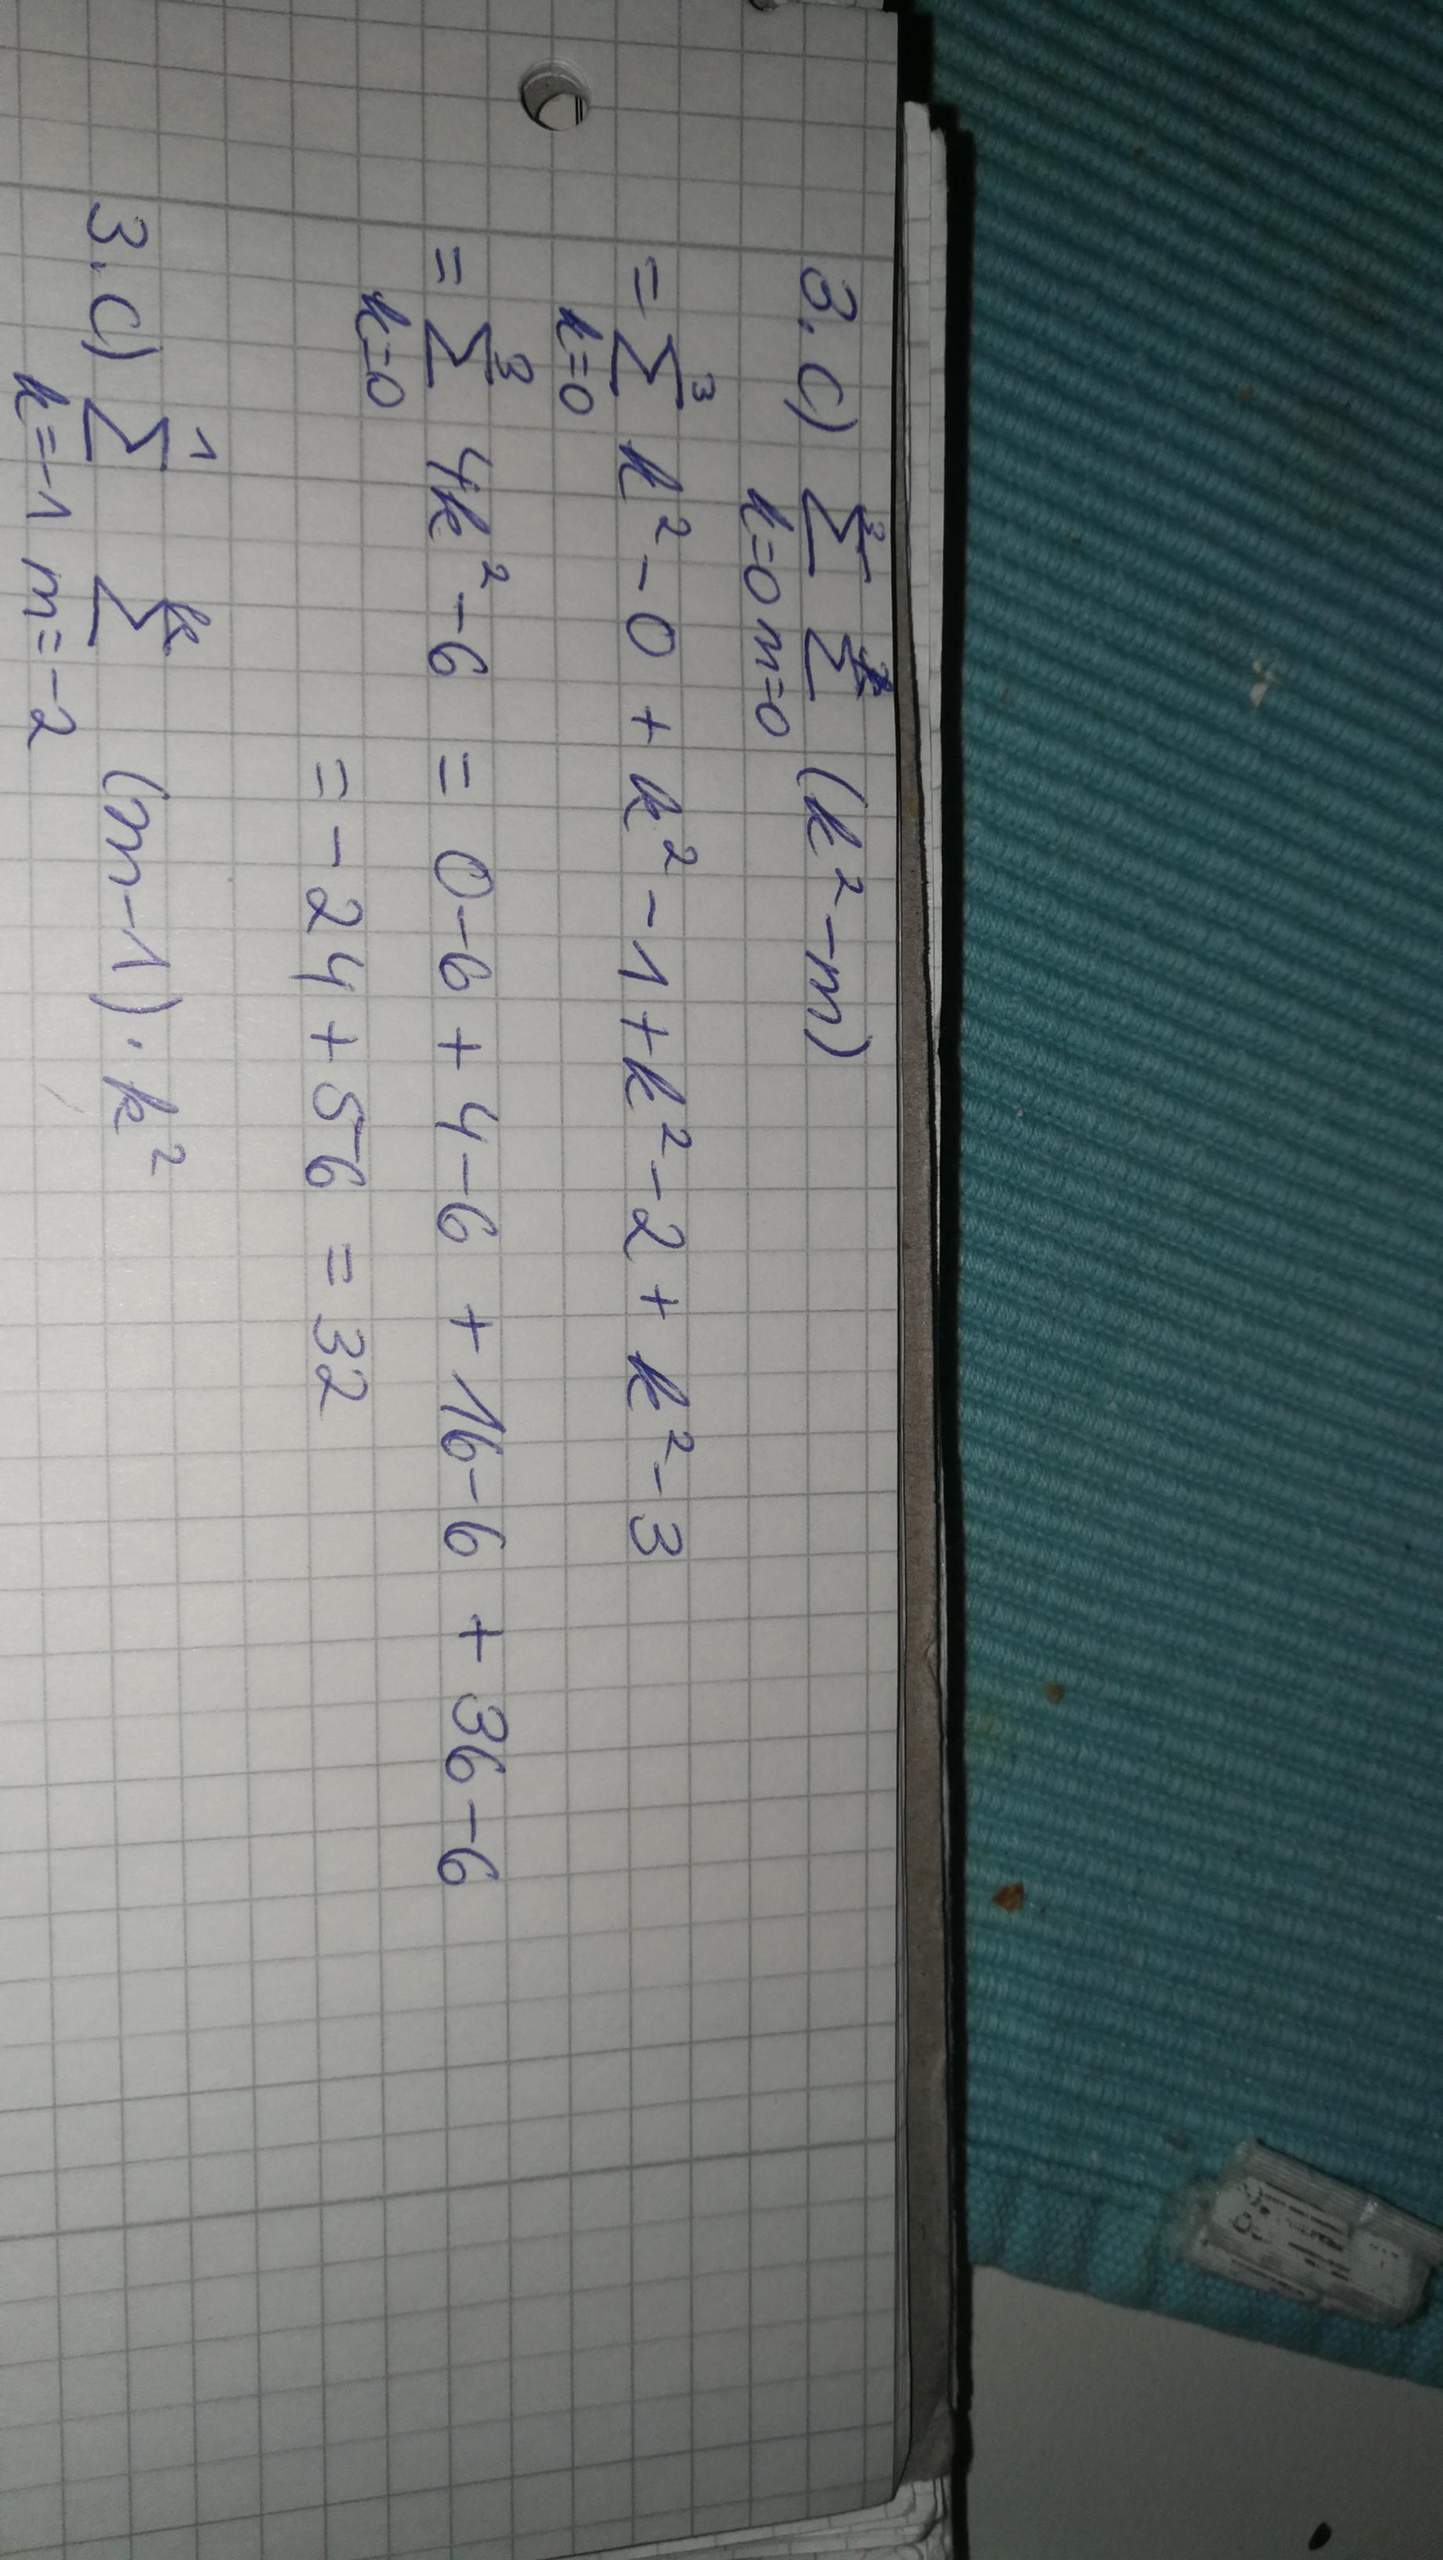 3. c) ∑³ₖ₌₀ ∑ₘ₌₀ (k²-m)
= ∑³ₖ₌₀ k²-0 + k²-1 + k²-2 + k²-3
= ∑³ₖ₌₀ 4k²-6 = 0-6 + 4-6 + 16-6 + 36-6
= -24 + 56 = 32
3. c) ∑¹ₖ₌₋₁ ∑ᵏₘ₌₋₂ (m-1)·k²